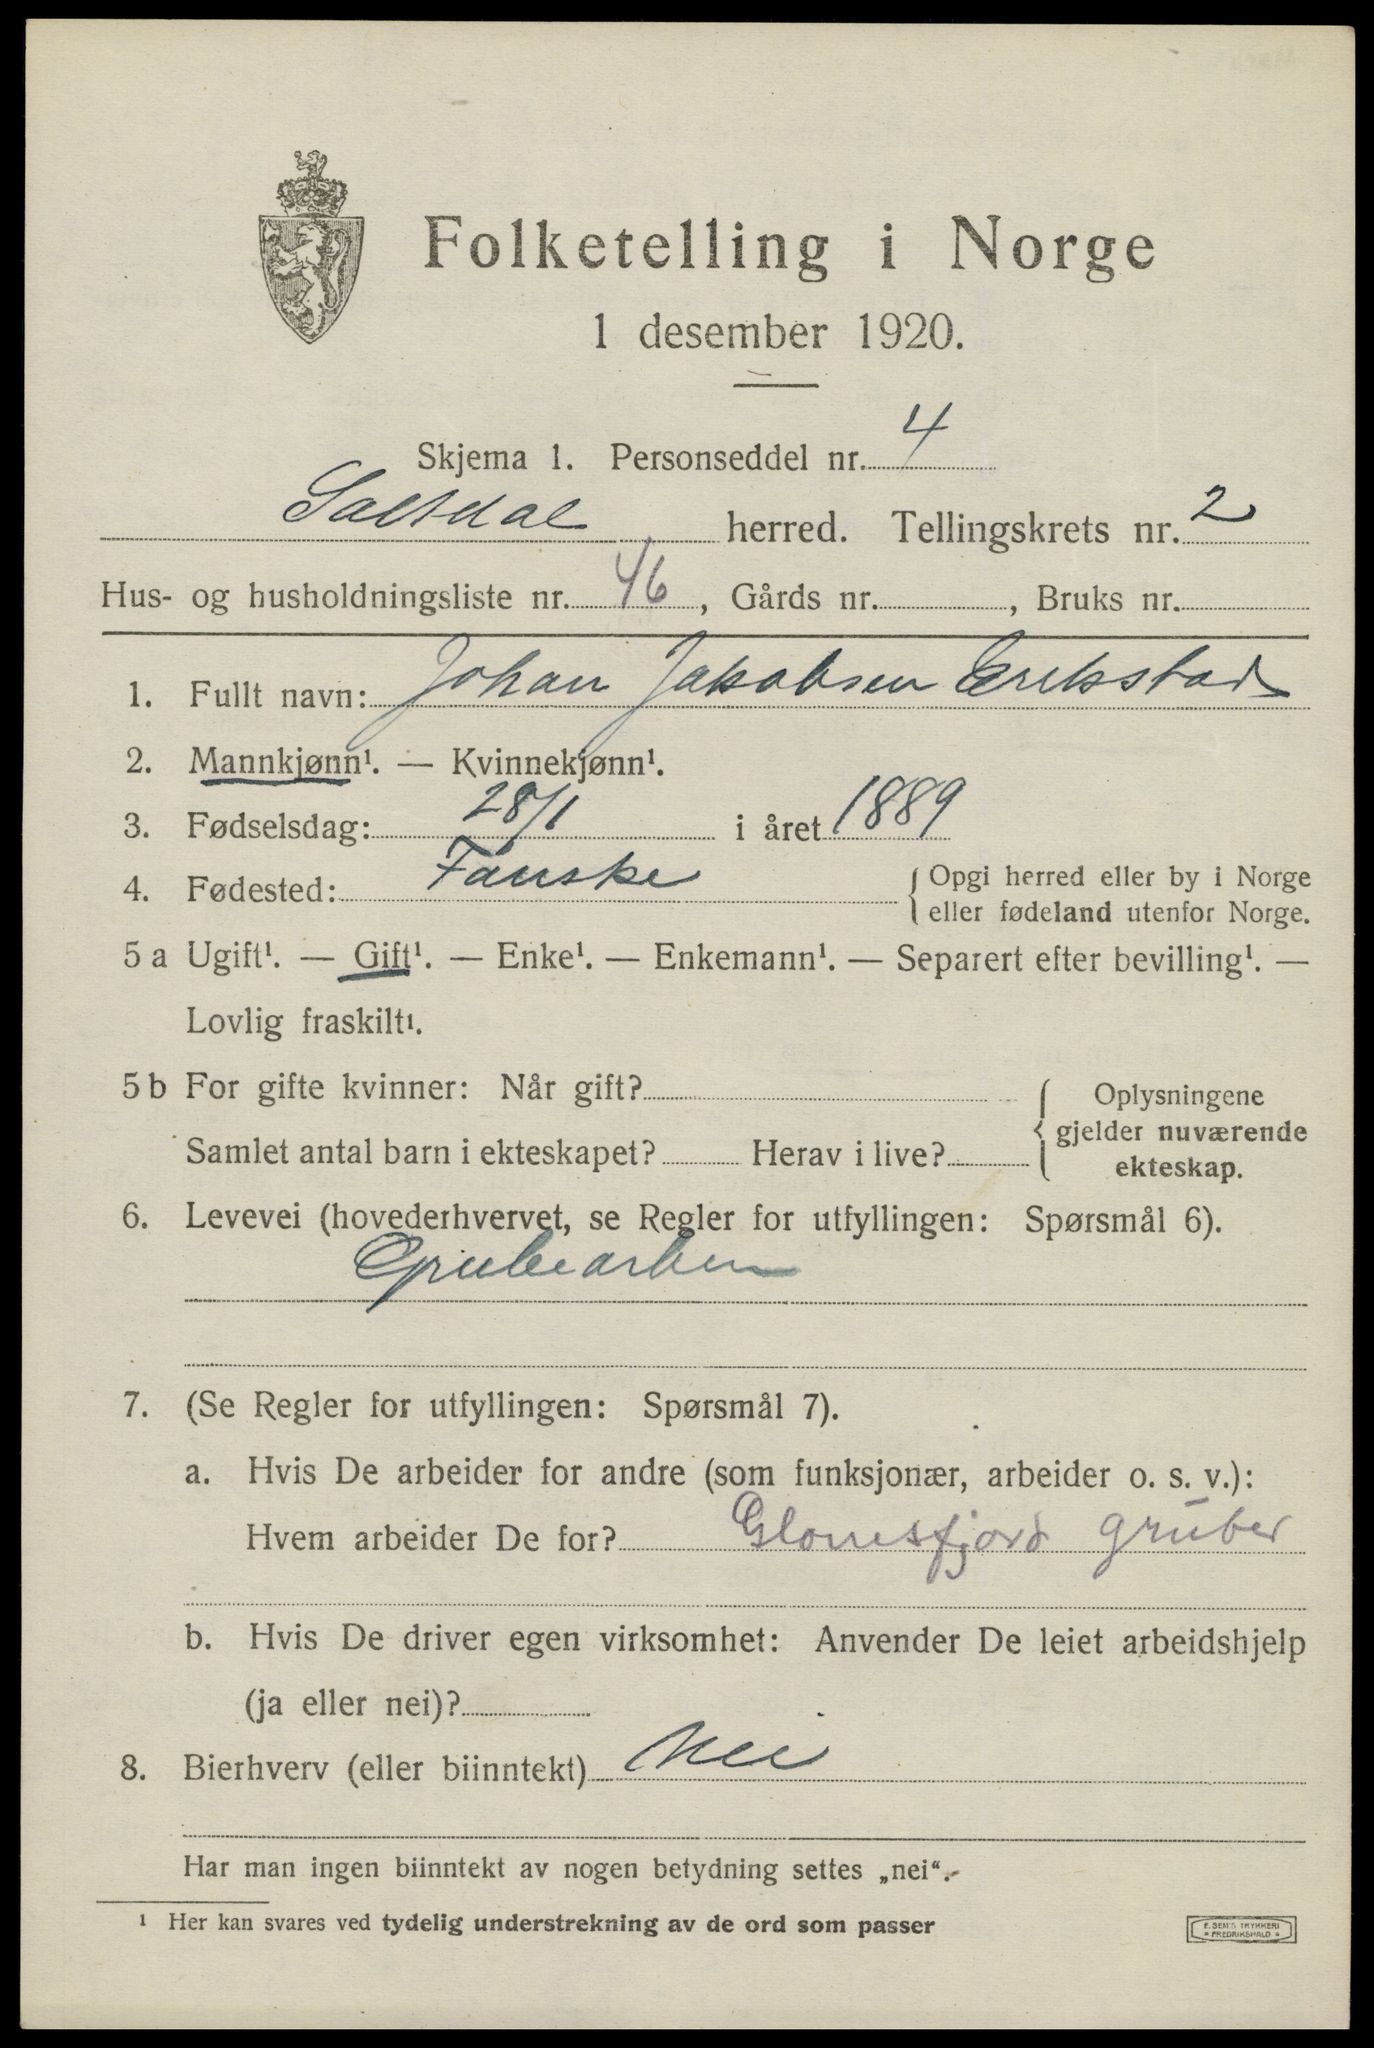 Folketelling i Norge
1 desember 1920.
Skjema 1. Personseddel nr. 4
Saltdal herred. Tellingskrets nr. 2
Hus- og husholdningsliste nr. 46, Gårds nr. , Bruks nr.
1. Fullt navn: Johan Jakobsen Erikstad
2. Mannkjønn¹. — Kvinnekjønn¹.
3. Fødselsdag: 28/1 i året 1889
4. Fødested: Fauske { Opgi herred eller by i Norge
eller fødeland utenfor Norge.
5 a Ugift¹. — Gift¹. — Enke¹. — Enkemann¹. — Separert efter bevilling¹. —
Lovlig fraskilt¹.
5 b For gifte kvinner: Når gift? { Oplysningene
gjelder nuværende
ekteskap.
Samlet antal barn i ekteskapet? Herav i live?
6. Levevei (hovederhvervet, se Regler for utfyllingen: Spørsmål 6).
Grubearben
7. (Se Regler for utfyllingen: Spørsmål 7).
a. Hvis De arbeider for andre (som funksjonær, arbeider o. s. v.):
Hvem arbeider De for? Glomsfjord gruber
b. Hvis De driver egen virksomhet: Anvender De leiet arbeidshjelp
(ja eller nei)?
8. Bierhverv (eller biinntekt) Nei
Har man ingen biinntekt av nogen betydning settes „nei“.
¹ Her kan svares ved tydelig understrekning av de ord som passer
E. SEM'S TRYKKERI
* FREDRIKSHALD *